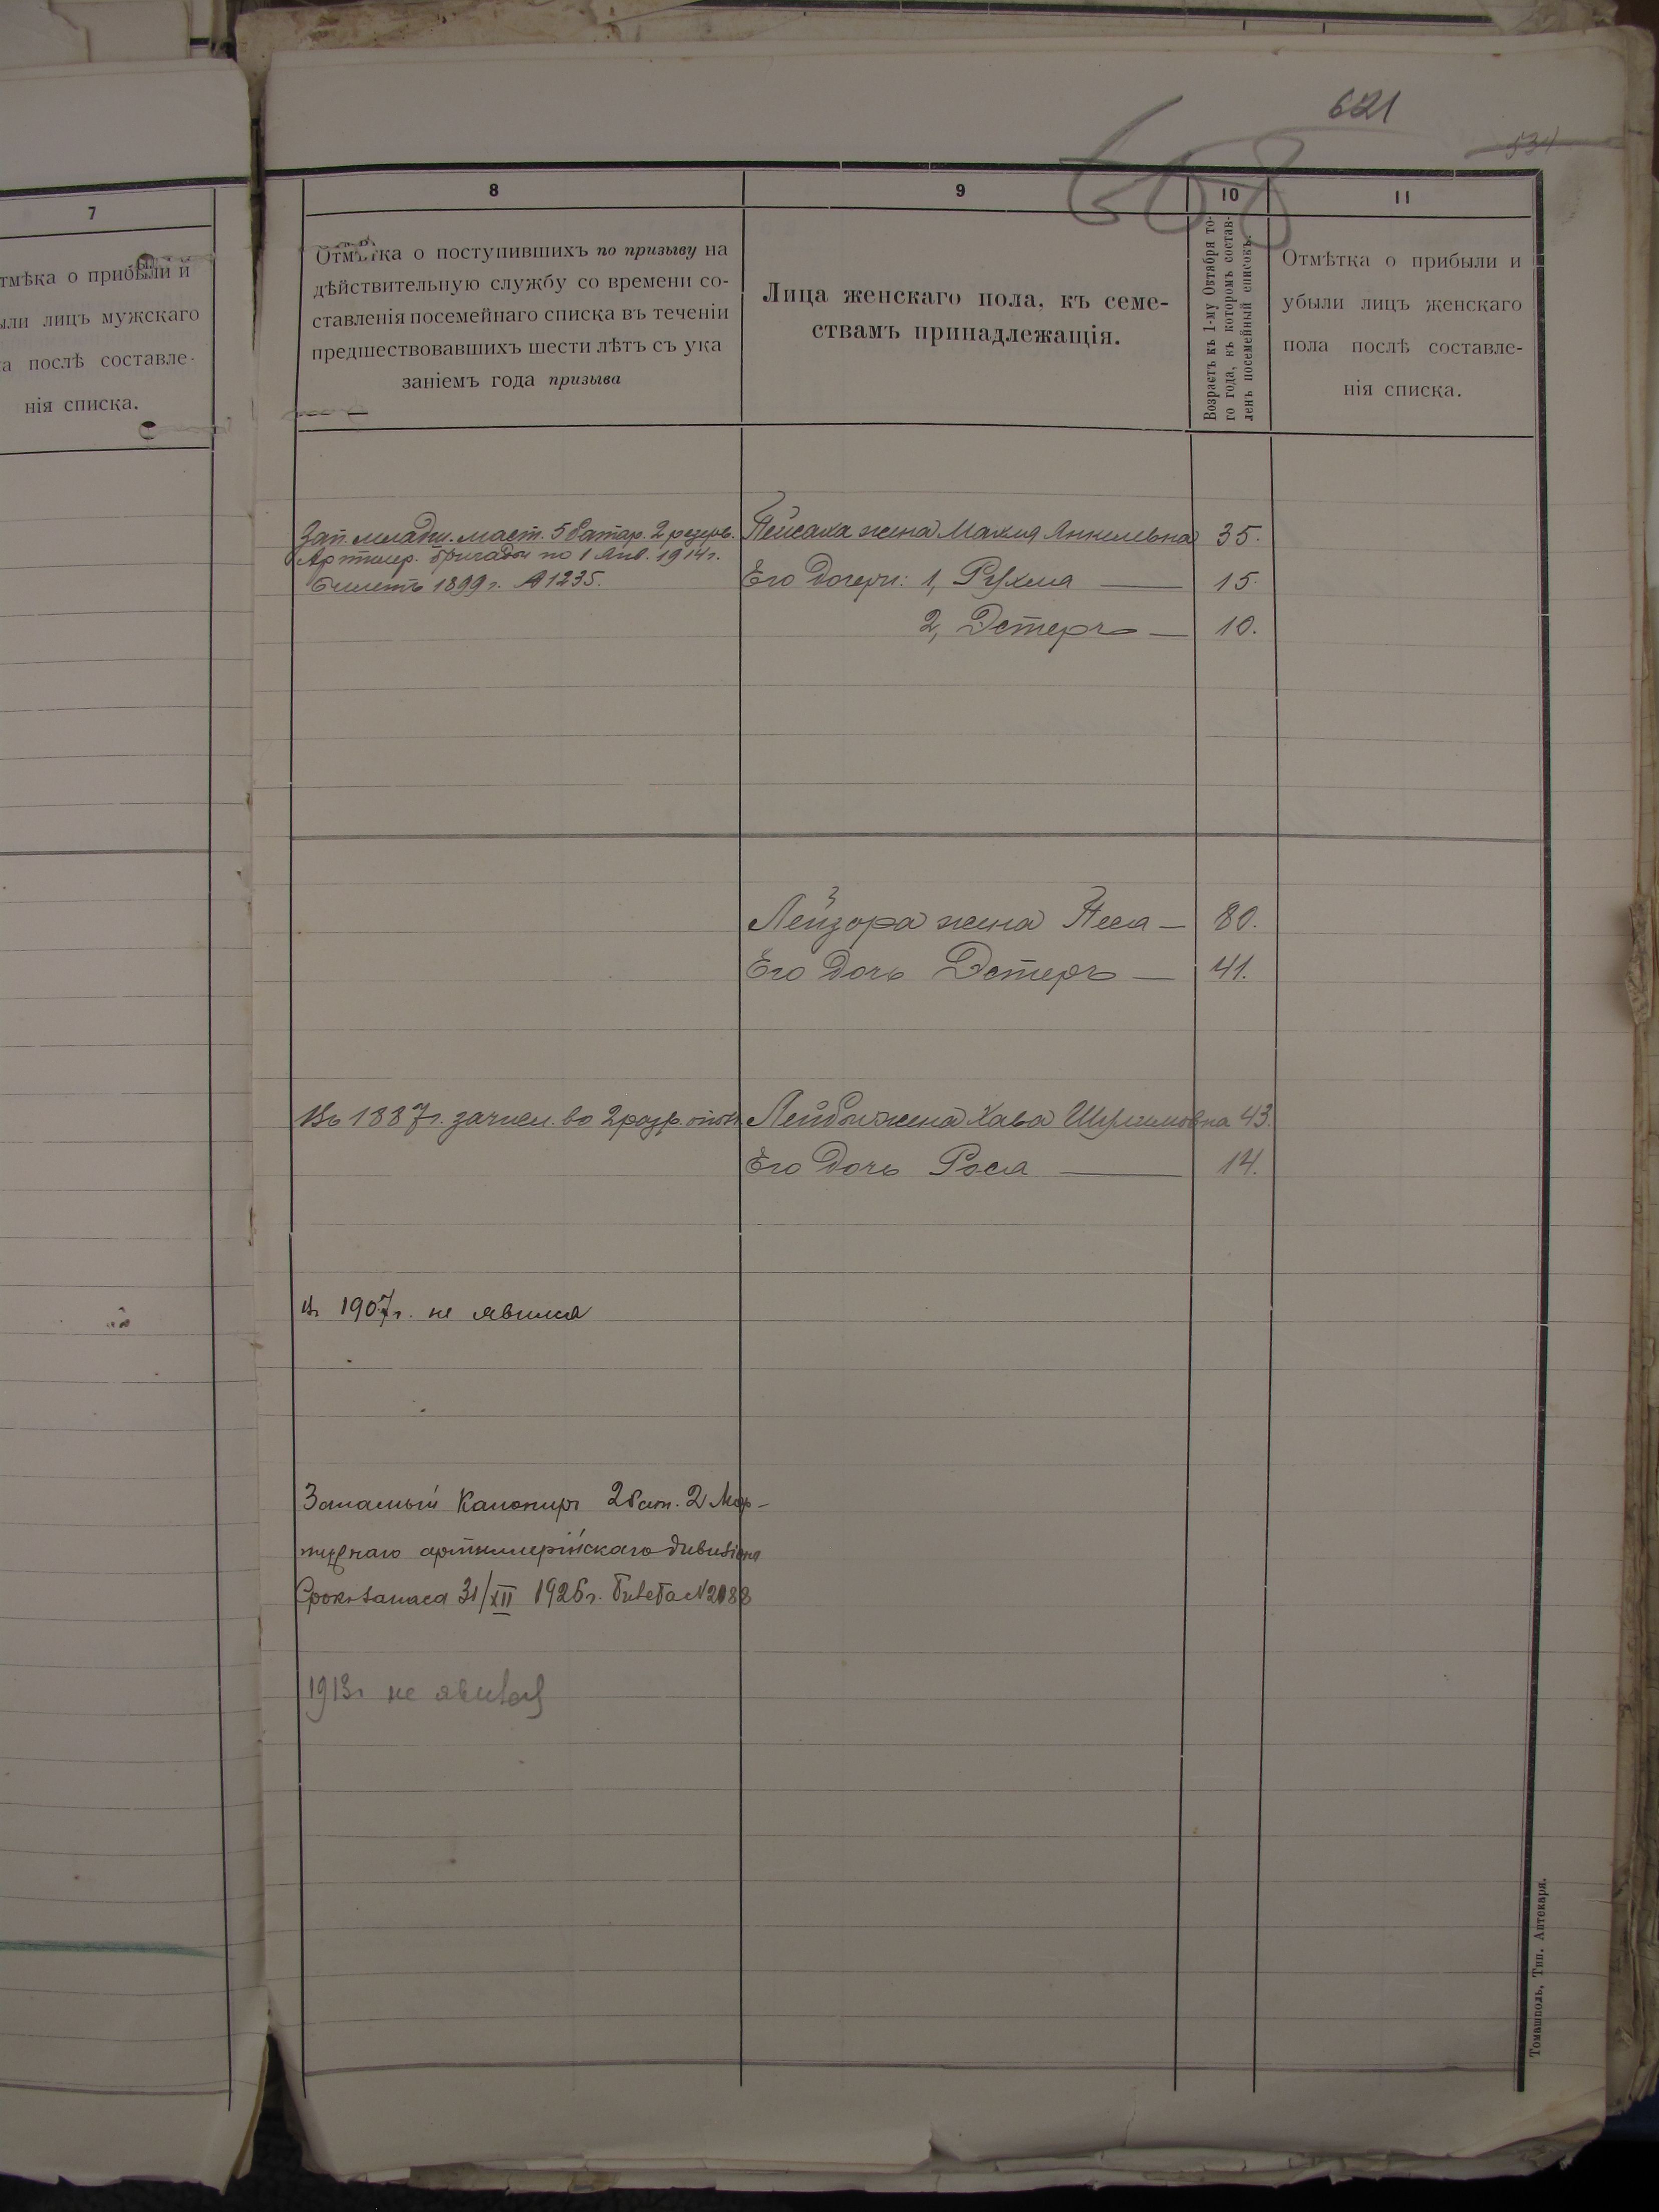 621
608
534
7
тмѣка о прибыли и
ыли лицъ мужскаго
а послѣ составле-
нія списка.
8
Отмѣтка о поступившихъ по призыву на
дѣйствительную службу со времени со-
ставленія посемейнаго списка въ теченіи
предшествовавшихъ шести лѣтъ съ ука
заніемъ года призыва
9
Лица женскаго пола, къ семе-
ствамъ принадлежащія.
10
Возрастъ къ 1-му Октября то-
го года, въ которомъ состав-
ленъ посемейный списокъ.
11
Отмѣтка о прибыли и
убыли лицъ женскаго
пола послѣ составле-
нія списка.
Зап. младш. маст. 5 батар. 2 резерв.
Артилер. бригады по 1 Янв. 1914 г.
билетъ 1899 г. № 1235.
Пейсаха жена Махля Анкелевна 35.
Его дочери: 1, Рухля 15.
2, Эстеръ 10.
Лейзора жена Песя 80.
Его дочь Эстеръ 41.
Въ 1887 г. зачисл. во 2 разр. ополч.
Лейбы жена Хава 43.
Его дочь Рося 14.
въ 1907 г. не явился
Запасный Канониръ 2 бат. 2 Мор-
тирнаго артиллерійскаго дивизіона
Срокъ запаса 31/XII 1926 г. билета № 2088
1913 г не явился
Томашполь, Тип. Аптекаря.